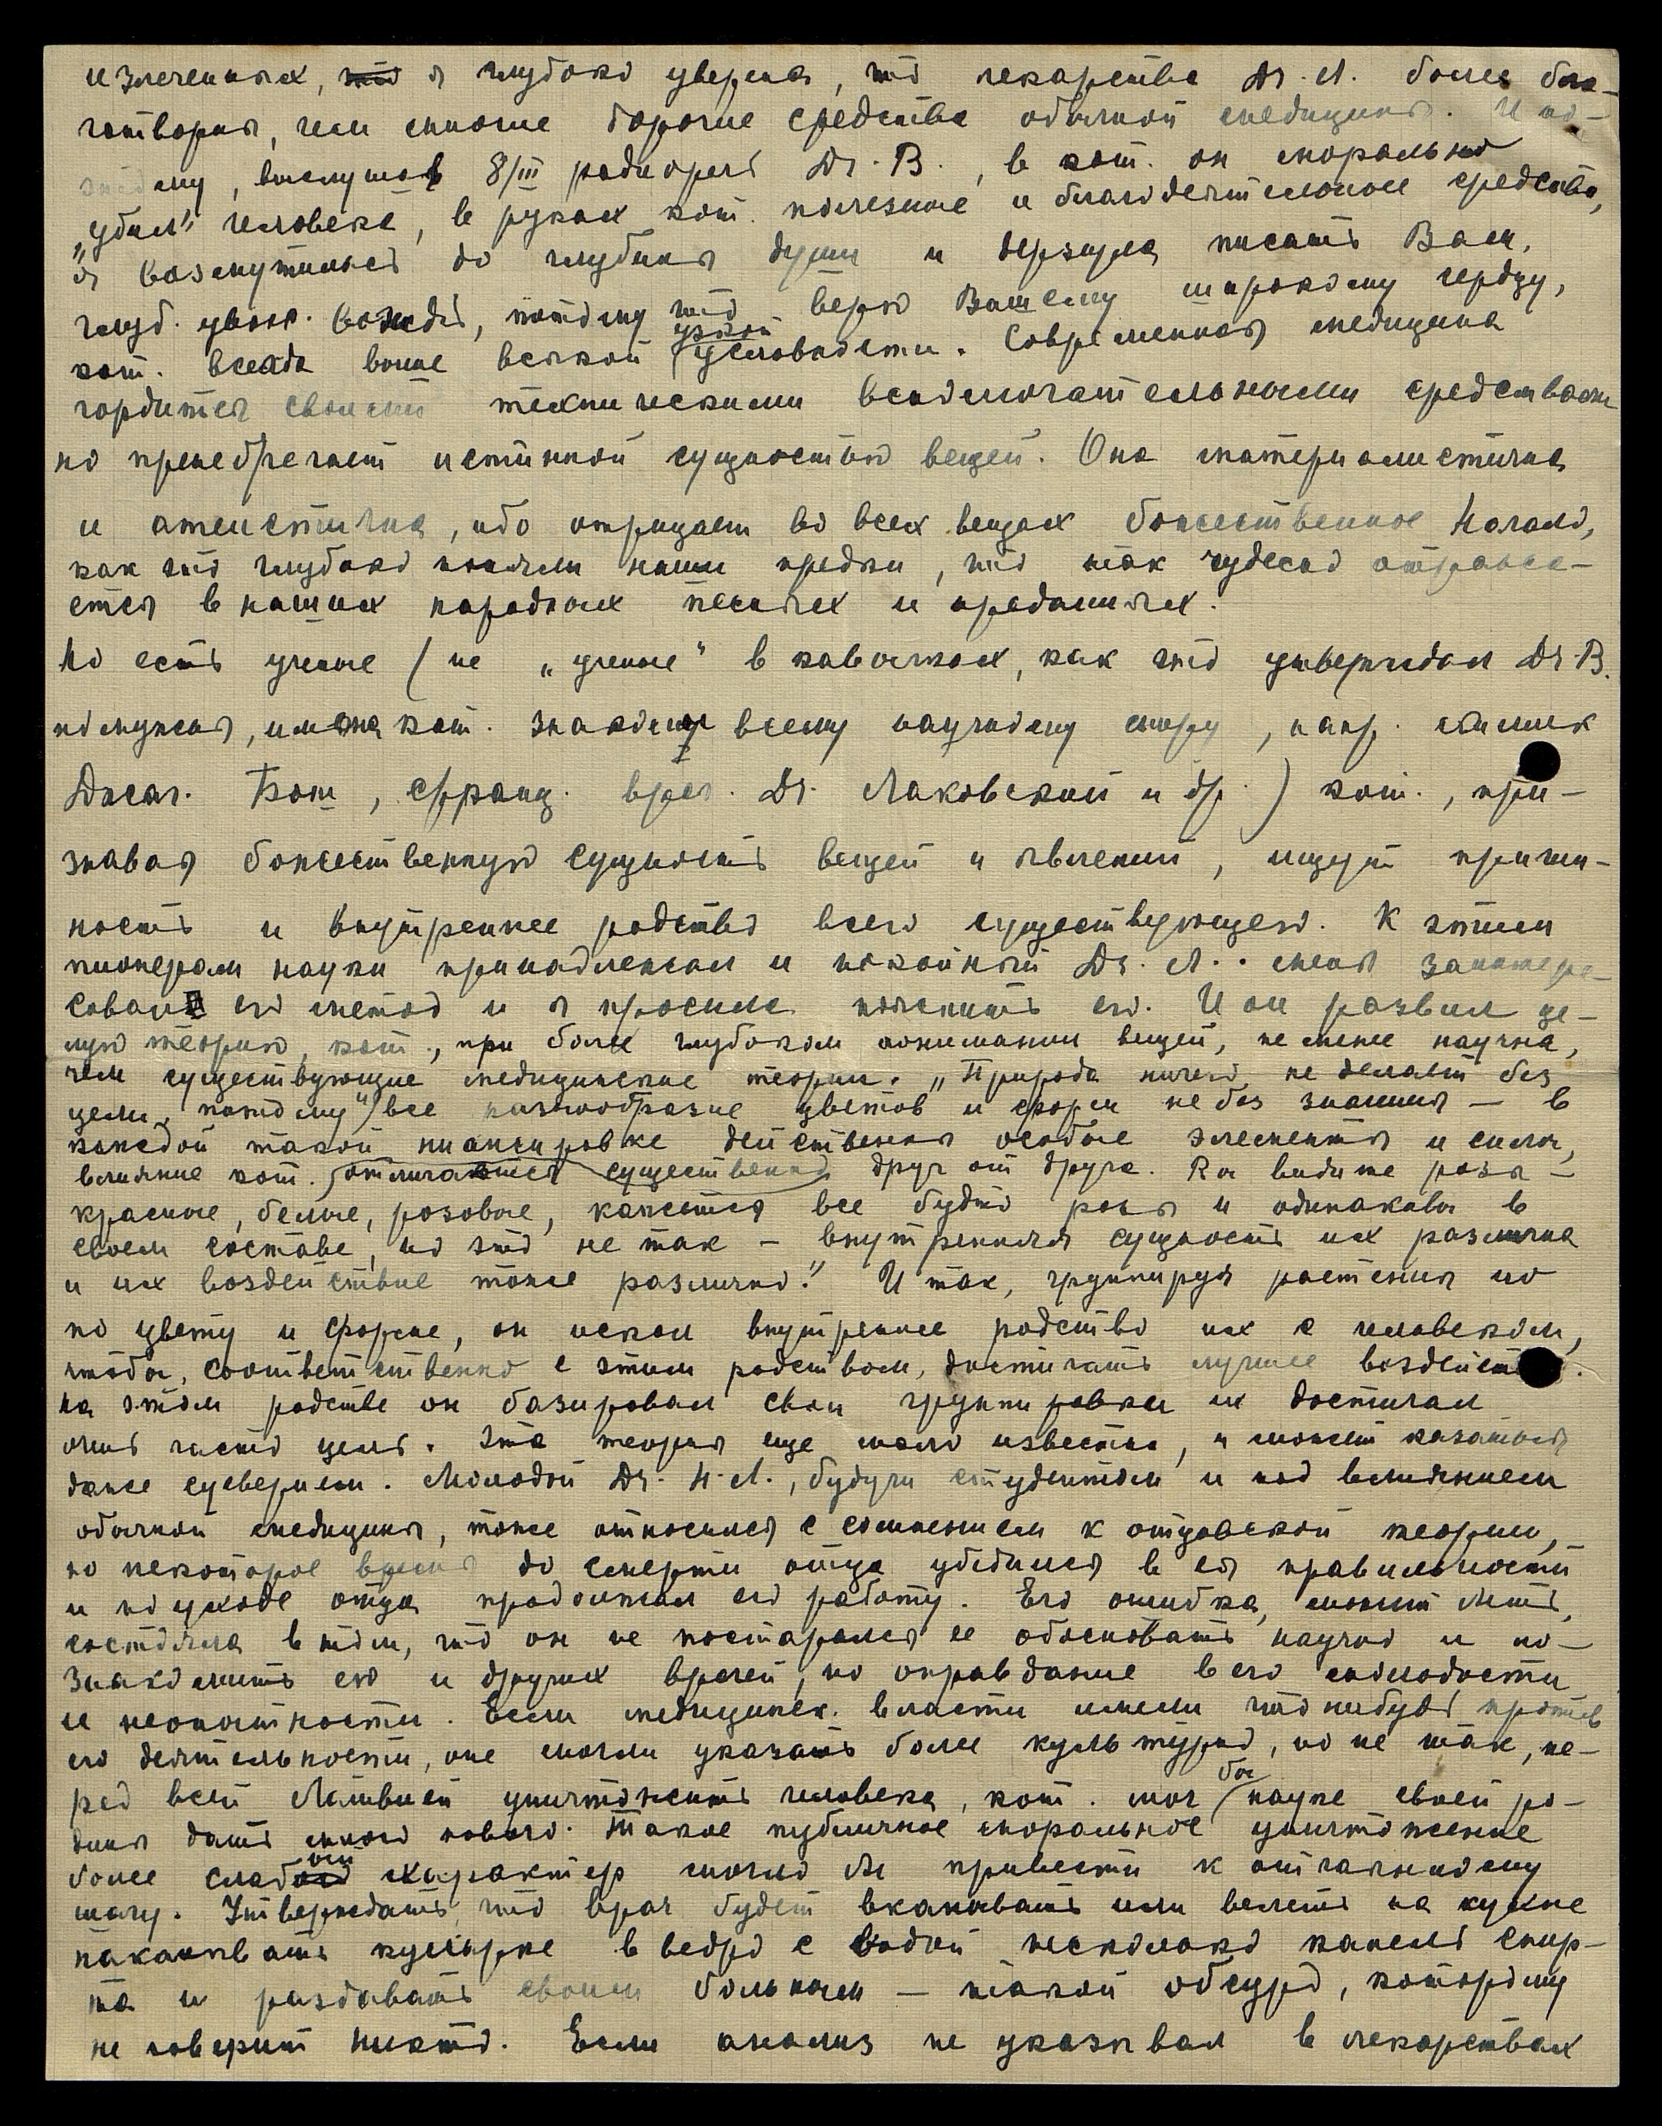 излеченных, что я глубоко уверена, что лекарства Dr. Л. более бла-
готворны, чем многие дорогие средства обычной медицины. И по-
этому, выслушав 8/III радиоречь Dr. В., в кот. он морально
„убил" человека, в руках кот. полезные и благодетельные средства,
я возмутилась до глубины души и дерзнула писать Вам,
глуб. уваж. вождь, потому что верю Вашему широкому сердцу,
кот. всегда выше всякой узкой условности. Современная медицина
гордится своими техническими вспомогательными средствами
но пренебрегает истинной сущностью вещей. Она материалистична
и атеистична, ибо отрицает во всех вещах божественное Начало,
как это глубоко поняли наши предки, что так чудесно отражает-
ся в наших народных песнях и преданиях.
Но есть ученые (не „ученые" в кавычках, как это утверждал Dr. В.
, имена кот. знакомы всему научному миру, напр. химик
Джаг. Бош, франц. врач. Dr. Лаковский и др.) кот., при-
знавая божественную сущность вещей и явлений, ищут причин-
ность и внутреннее родство всего существующего. К этим
пионерам науки принадлежал и покойный Dr. Л.. Меня заинтере-
совал его метод и я просила пояснить его. И он развил це-
лую теорию, кот., при более глубоком понимании вещей, не менее научна,
чем существующие медицинские теории. „Природа ничего не делает без
цели, потому" все разнообразие цветов и форм не без значения — в
каждой такой нюансировке действенны особые элементы и силы,
влияние кот. отличается существенно друг от друга. Вы видите розы —
красные, белые, розовые, кажется все будто розы и одинаковы в
своем составе, но это не так — внутренняя сущность их различна
и их воздействие тоже различно." Итак, группируя растения по
по цвету и форме, он искал внутреннее родство их с человеком,
чтобы, соответственно с этим родством, достигать лучшее воздейст.
На этом родстве он базировал свои группировки и достигал
очень часто цель. Эта теория еще мало известна, и может казаться
даже суеверием. Молодой Dr. Н. Л., будучи студентом и под влиянием
обычной медицины, тоже относился с сомнением к отцовской теории,
но некоторое время до смерти отца убедился в ея правильности
и по уходе отца продолжал его работу. Его ошибка, может быть,
состояла в том, что он не постарался ее обосновать научно и по-
знакомить ею и других врачей, но оправдание в его молодости
и неопытности. Если медицинск. власти имели что нибудь против
его деятельности, оне могли указать более культурно, но не так, пе-
ред всей Латвией уничтожить человека, кот. мог бы науке своей ро-
дины дать много нового. Такое публичное моральное уничтожение
более слабый характер могло бы привести к отчаянному
шагу. Утверждать, что врач будет вкапывать или велеть на кухне
накапывать кухарке в ведро с водой несколько капель спир-
та и раздавать своим больным — такой абсурд, которому
не поверит никто. Если анализ не указывал в лекарствах